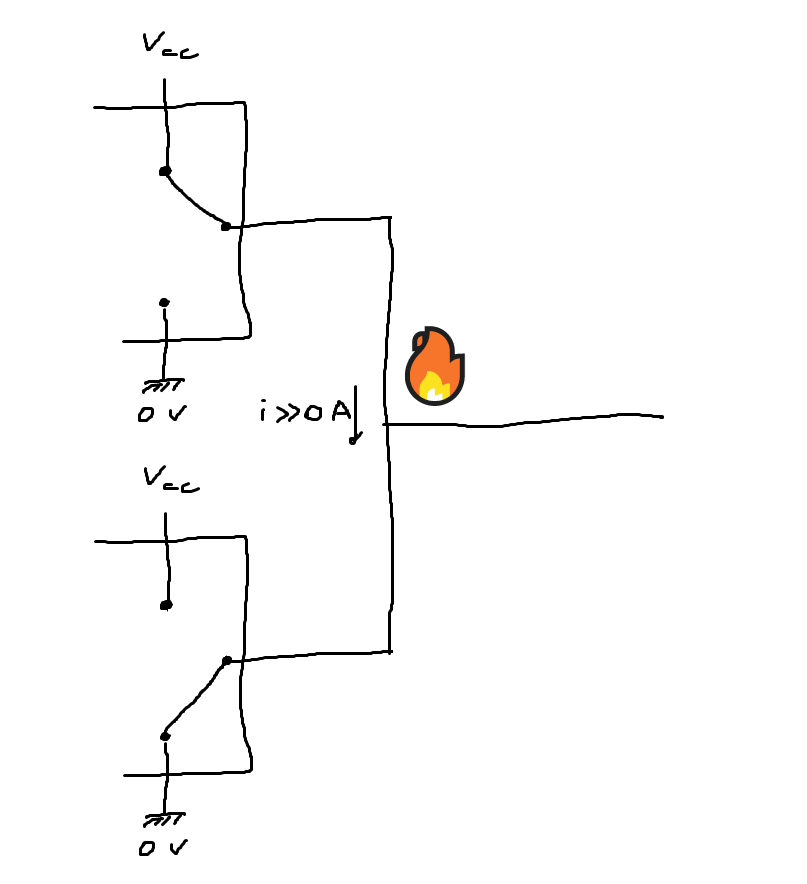 Vcc
0 V
i >> 0 A
Vcc
0 V